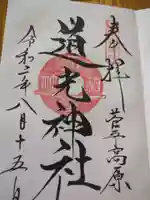 奉拝
萱平高原
道光神社
令和二年八月十五日